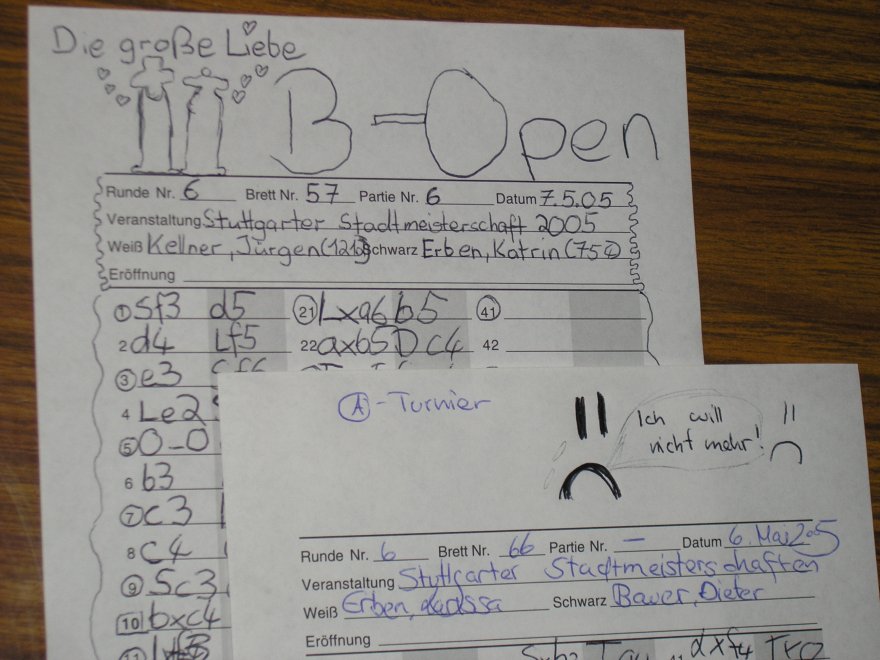 Die große Liebe
B-Open
Runde Nr. 6 Brett Nr. 57 Partie Nr. 6 Datum 7.5.05
Veranstaltung Stuttgarter Stadtmeisterschaft 2005
Weiß Kellner, Jürgen Schwarz Erben, Katrin
Eröffnung
1 Sf3 d5 21 Lxa6 b5 41
2 d4 Lf5 22 axb5 Dc4 42
3 e3
4 Le2
5 0-0
6 b3
7 c3
8 c4
9 Sc3
10 bxc4
11
A-Turnier
Ich will
nicht mehr!
Runde Nr. 6 Brett Nr. 66 Partie Nr. — Datum 6. Mai 2005
Veranstaltung Stuttgarter Stadtmeisterschaften
Weiß Erben, Schwarz Bauer, Dieter
Eröffnung
dxf4